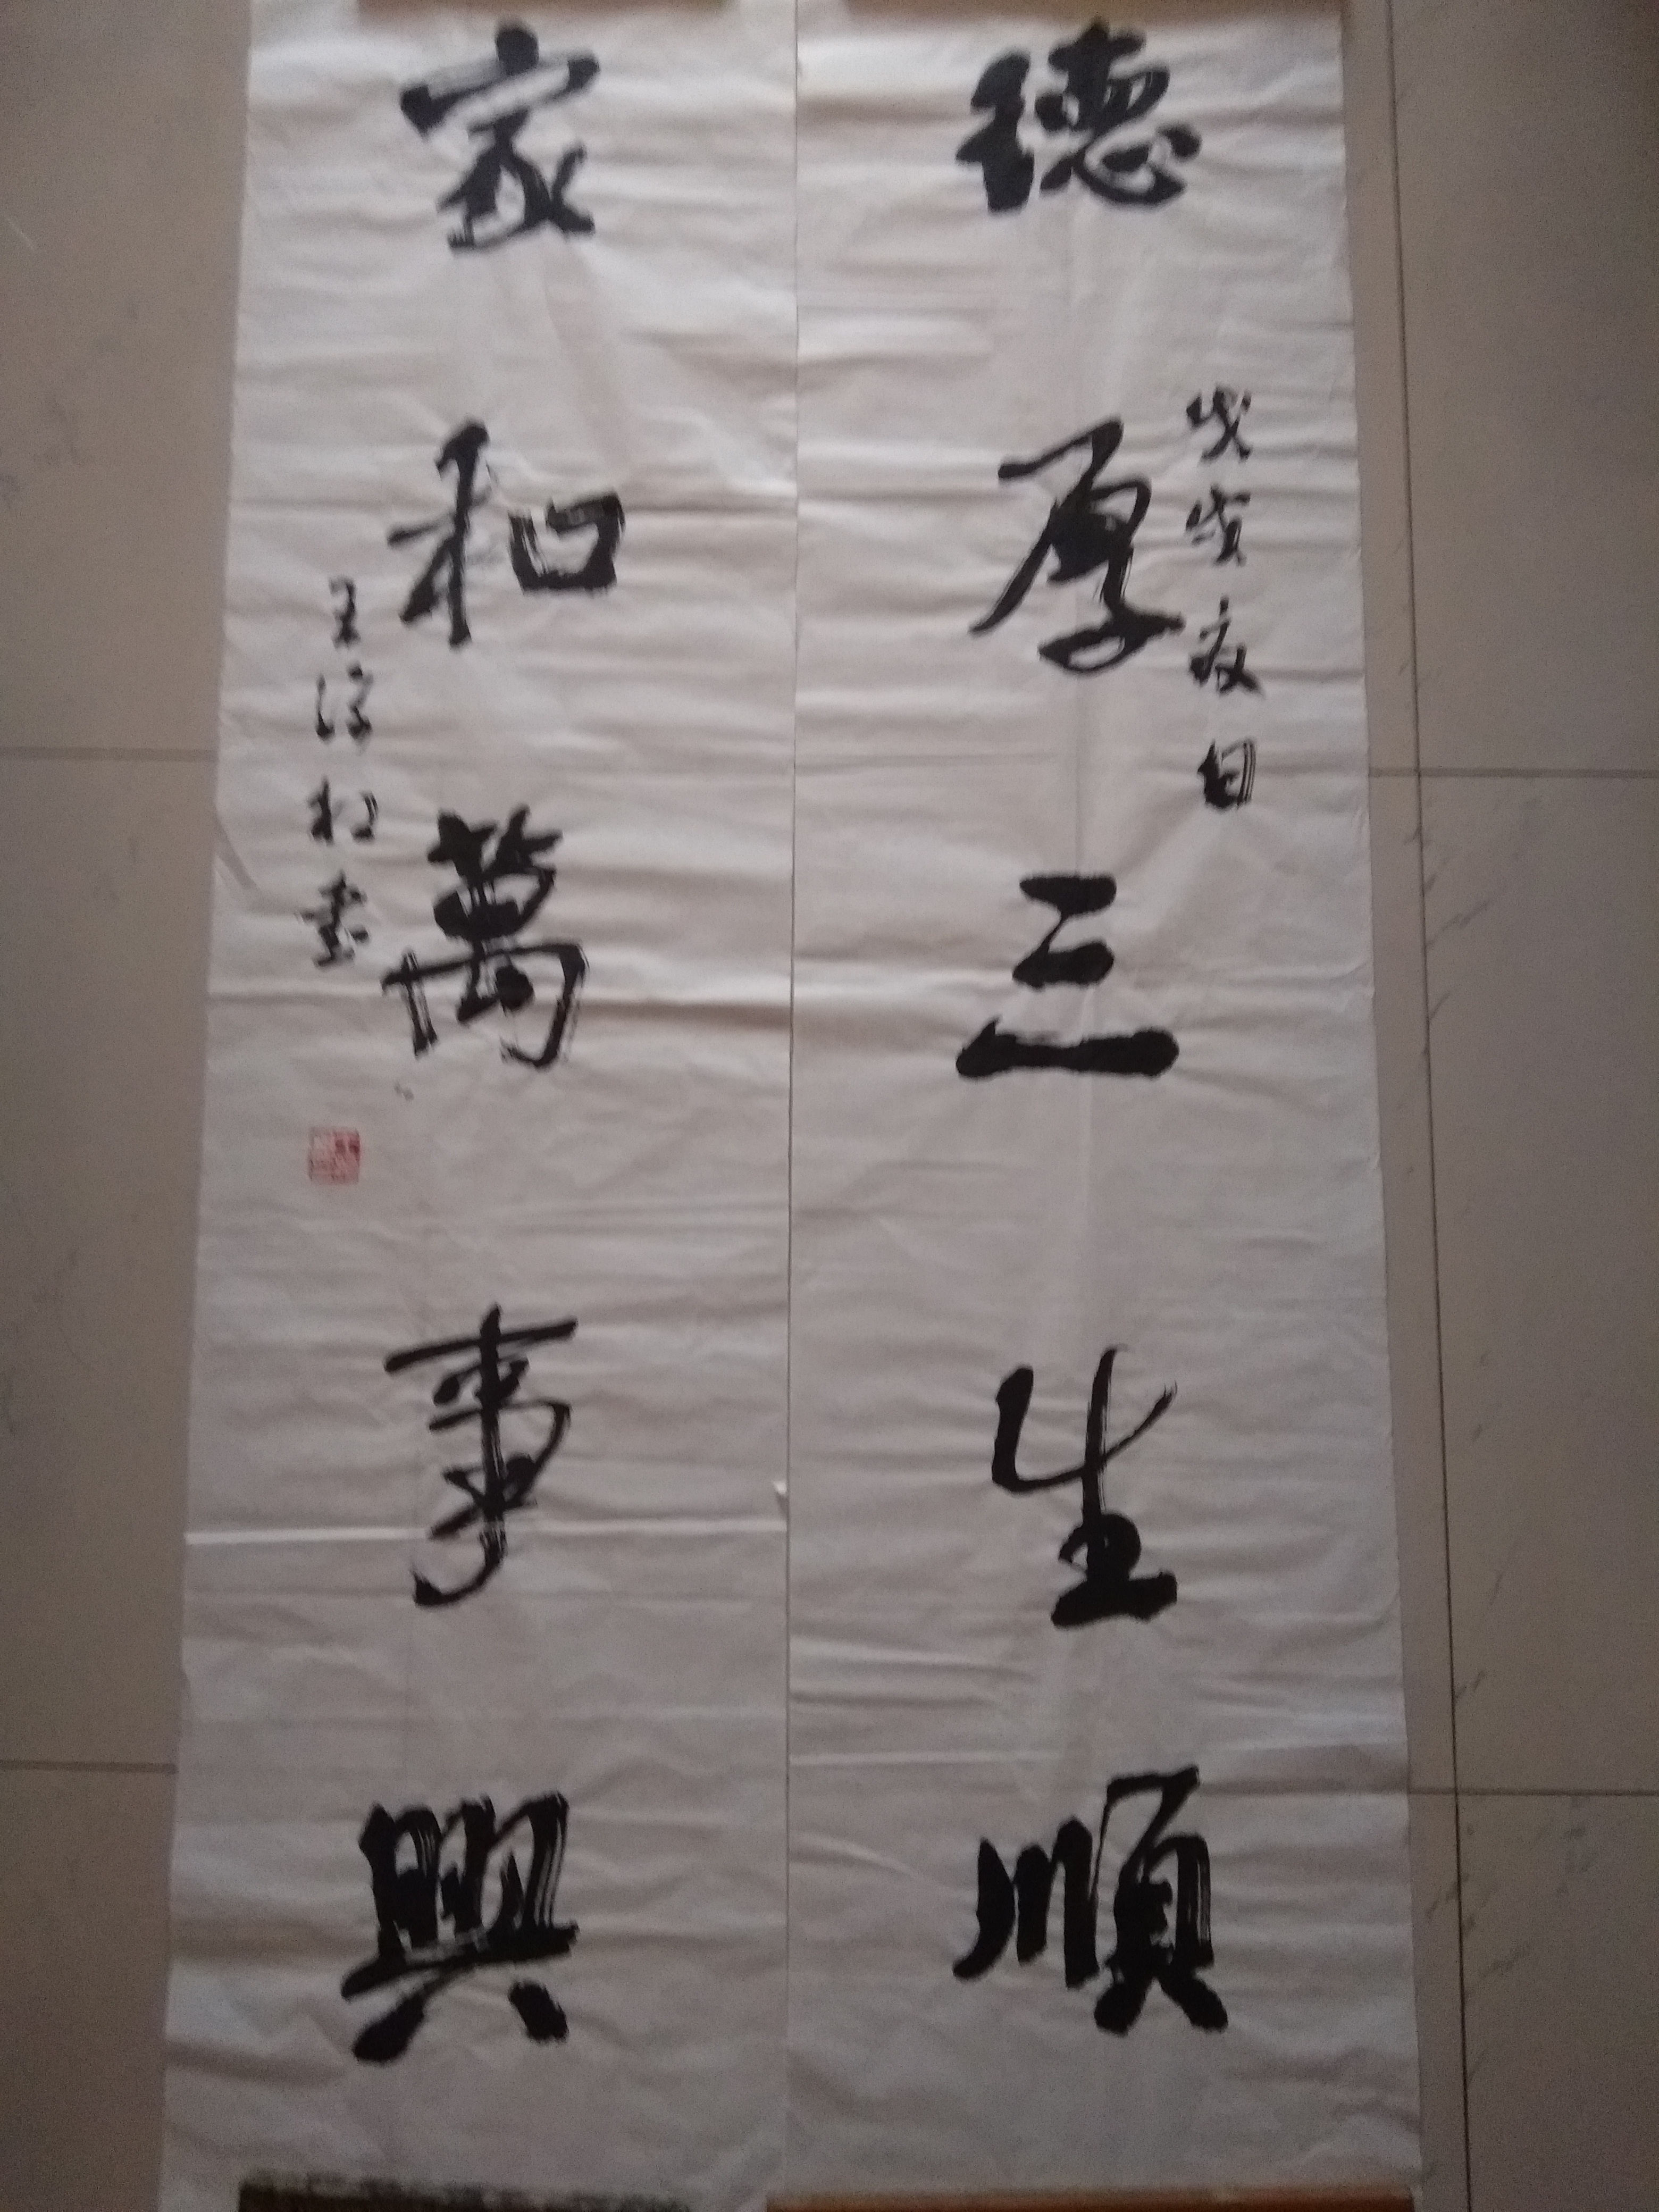 德厚三生順
戊戌夏日
家和萬事興
王淳松書